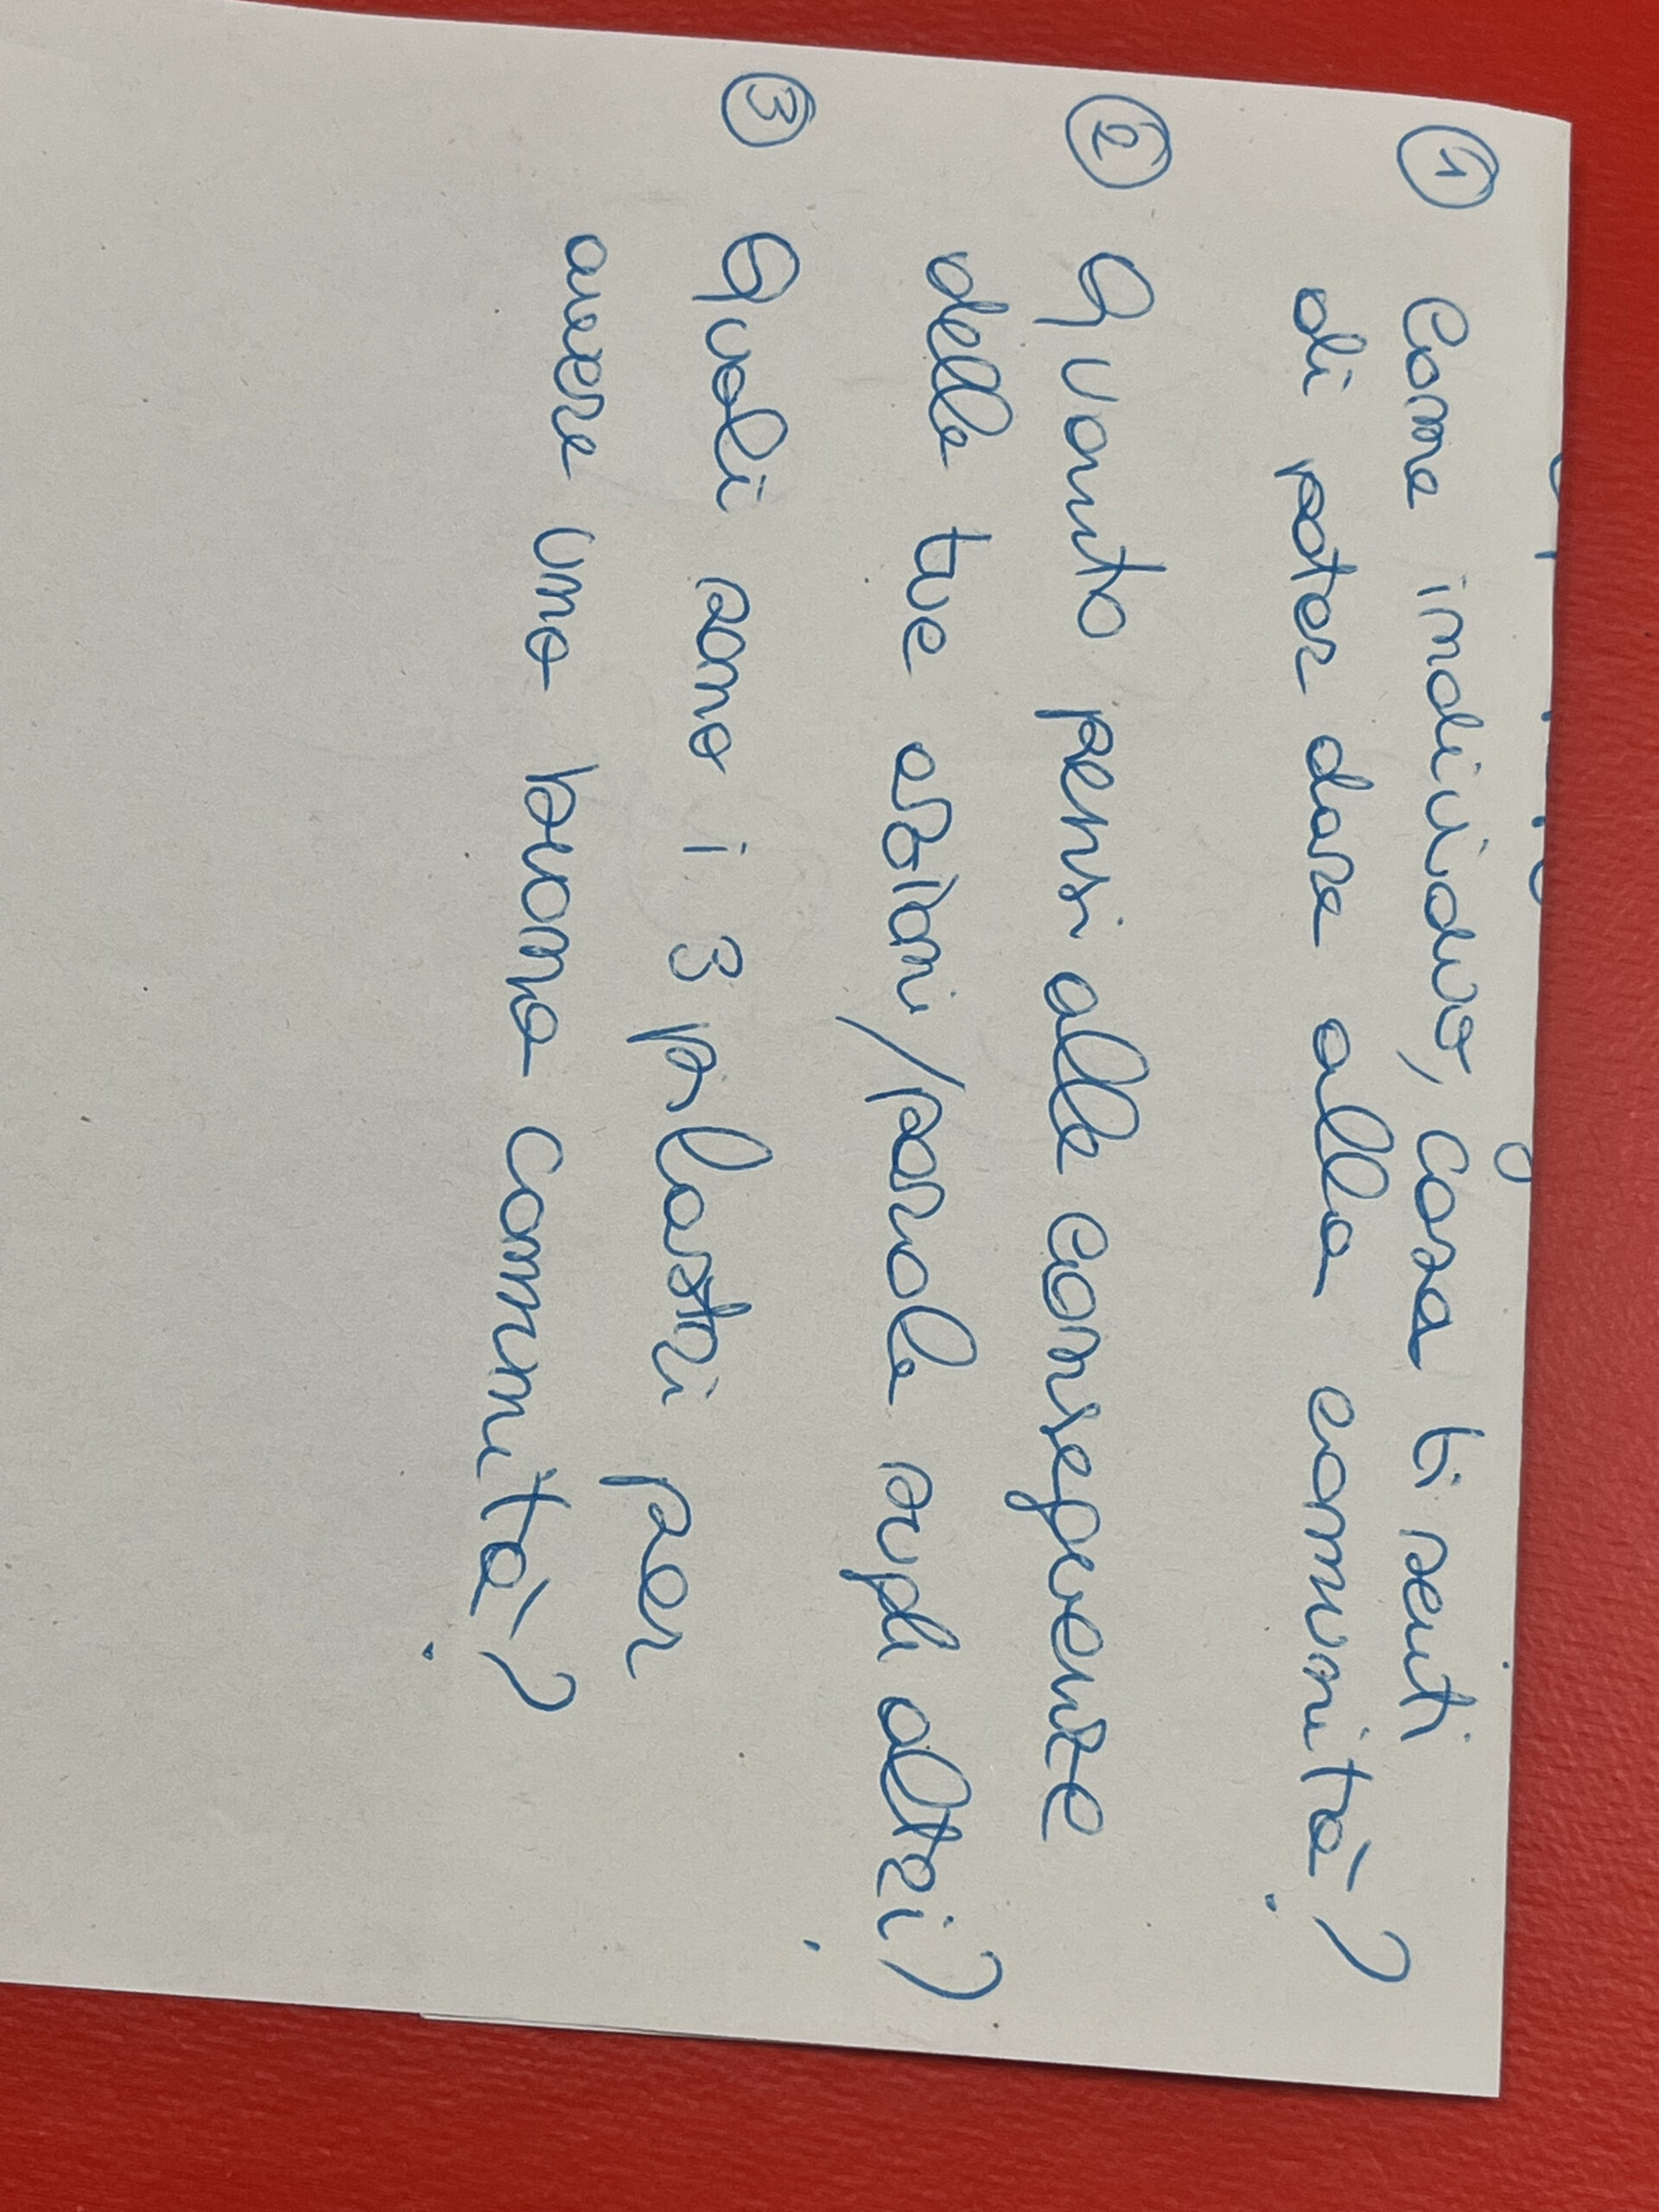 ① Come individuo, cosa ti senti
di poter dare alla comunità?
② Quanto pensi alle conseguenze
delle tue azioni/parole sugli altri?
③ Quali sono i 3 pilastri per
avere una buona comunità?